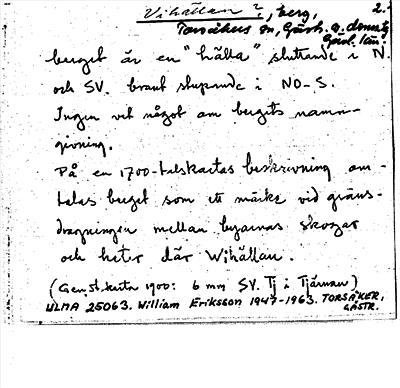 Vihällan ?, berg, 2.
Torsåkers sn, Gästr.
berget är en "hälla" sluttande i N.
och SV. brant stupande i NO-S.
Ingen vet något om bergets namn-
givning.
På en 1700-talskartas beskrivning om-
talas berget som ett märke vid gräns-
dragningen mellan byarnas skogar
och heter där Wihällan.
(Gen. st. karta 1900: 6 mm SV. Tj i Tjärnan)
ULMA 25063. William Eriksson 1947-1963. TORSÅKER,
GÄSTR.